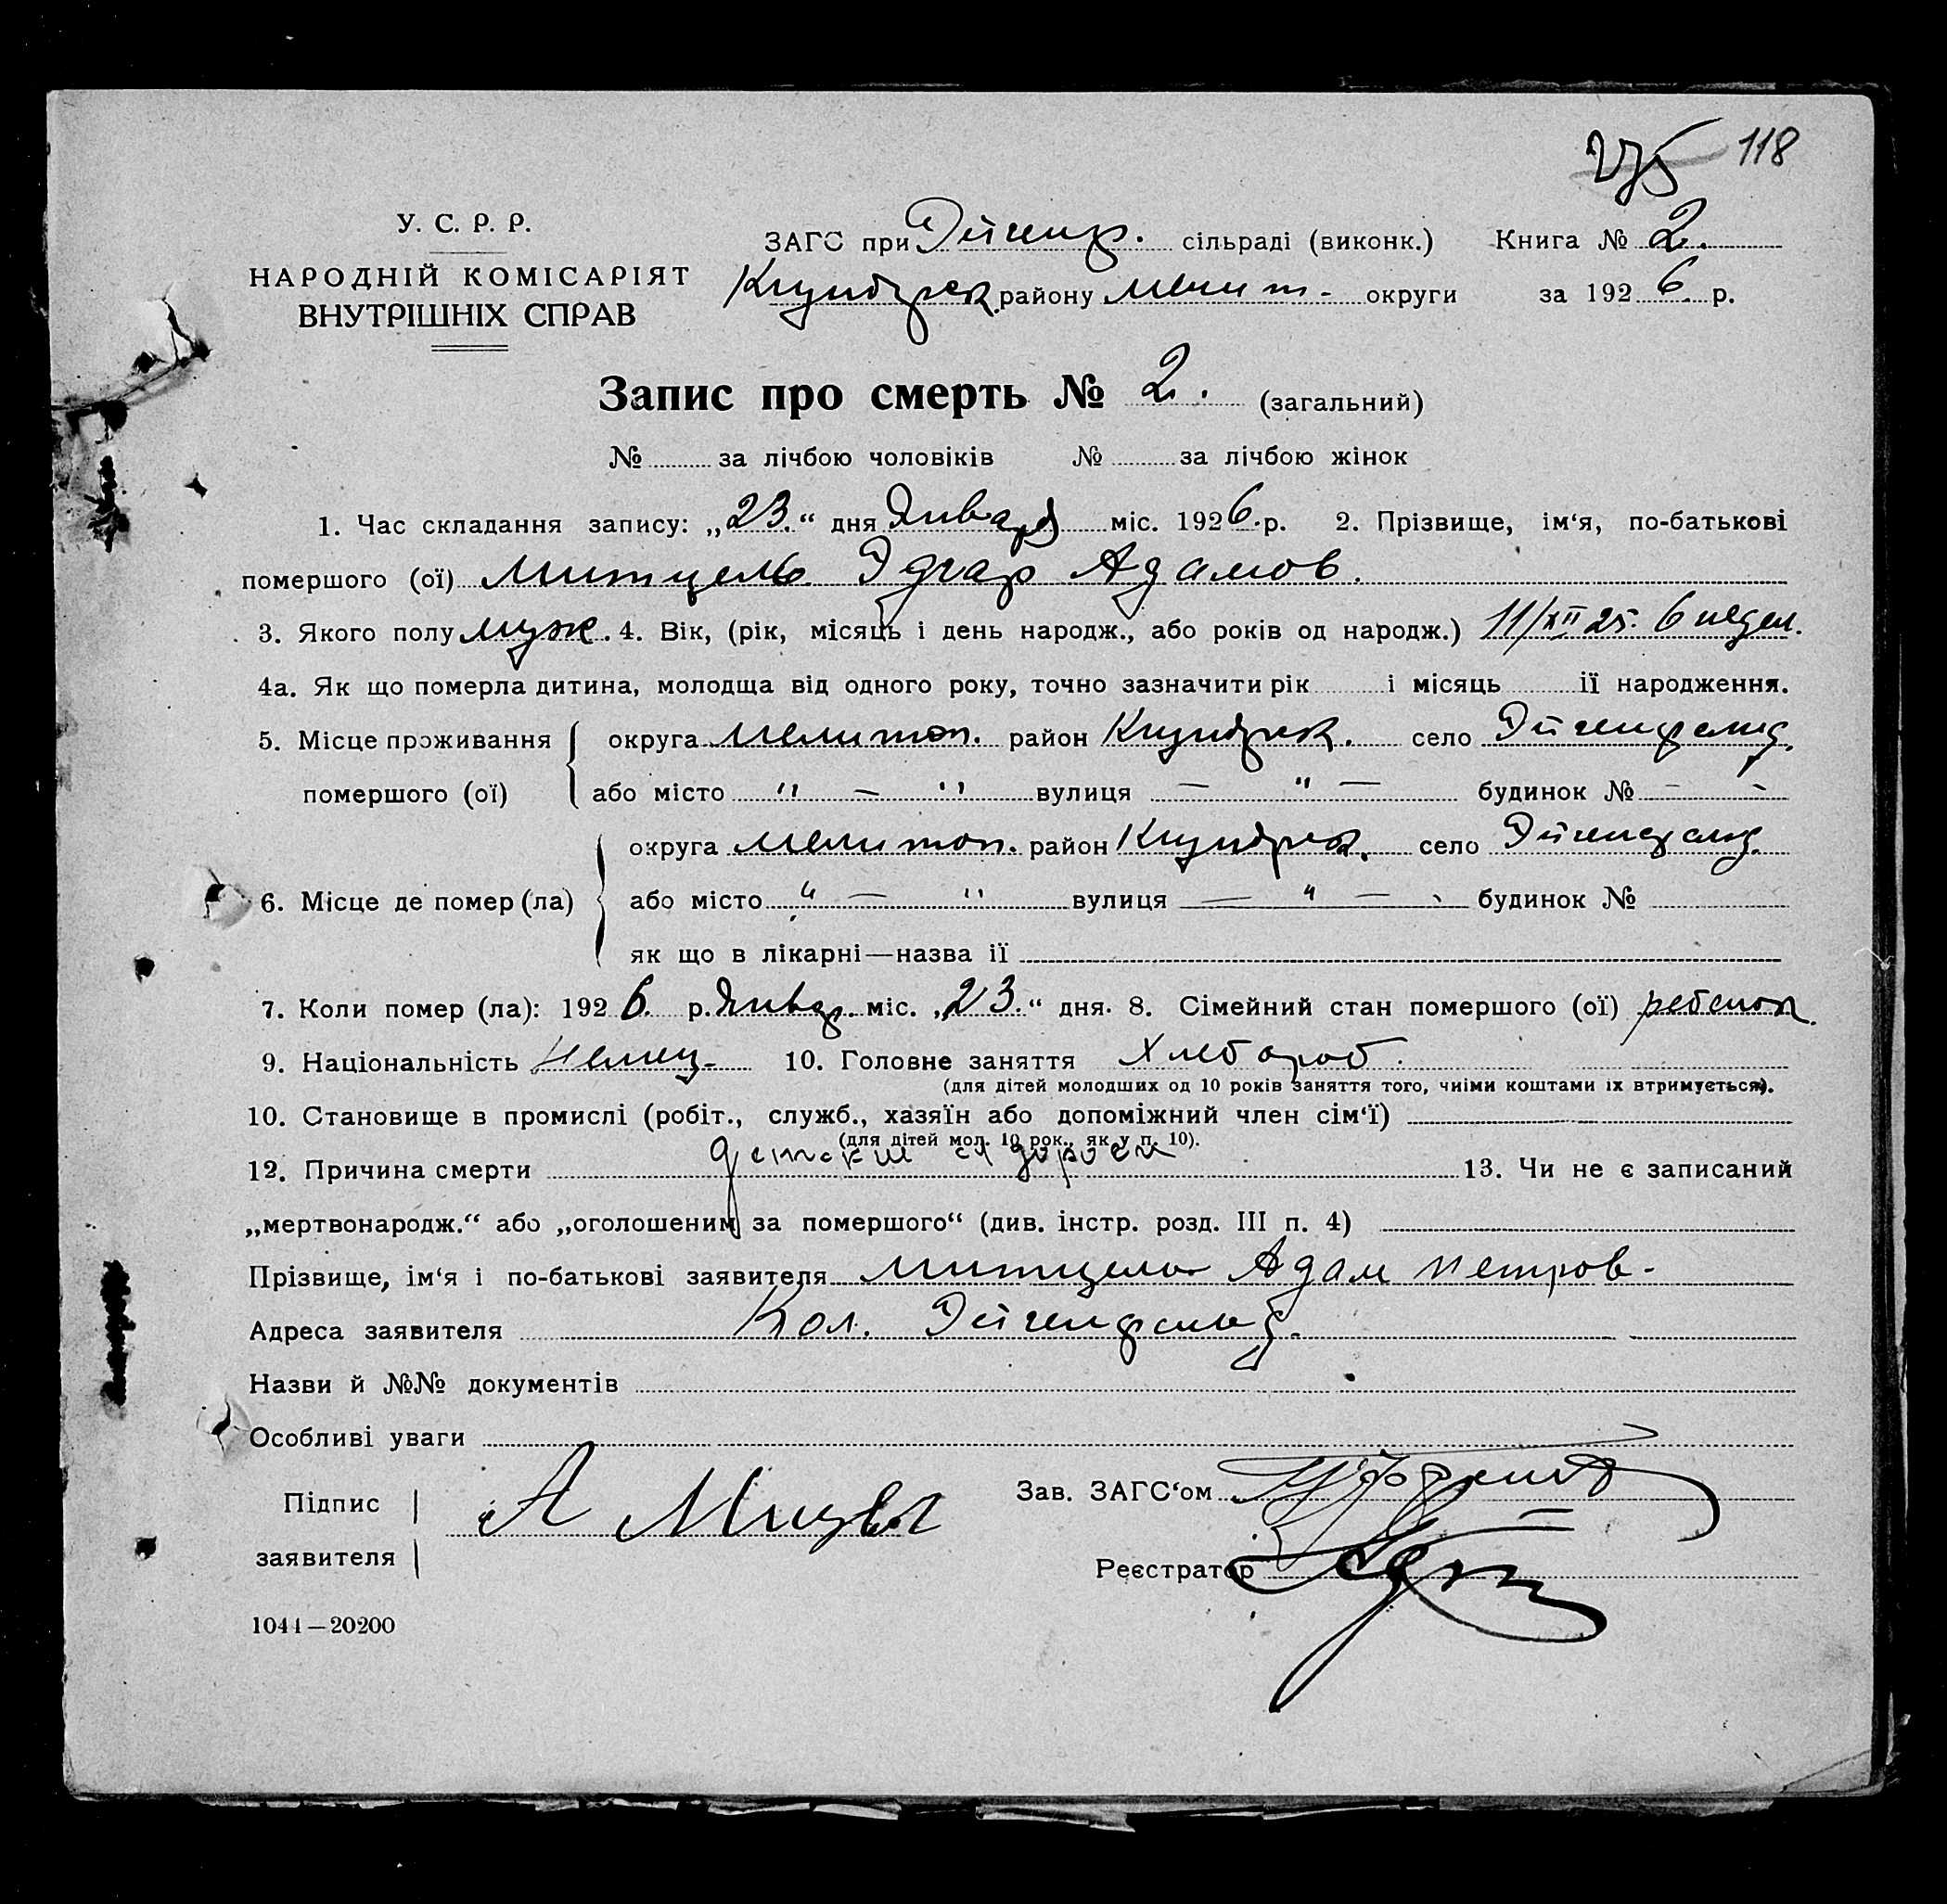 275 118
У. С. Р. Р.
НАРОДНІЙ КОМІСАРІЯТ
ВНУТРІШНІХ СПРАВ
ЗАГС при Эйгенф. сільраді (виконк.) Книга № 2.
району Мелит. округи за 1926 р.
Запис про смерть № 2. (загальний)
№ за лічбою чоловіків № за лічбою жінок
1. Час складання запису: „23.“ дня Января міс. 1926. р. 2. Прізвище, ім‘я, по-батькові
помершого (ої) Митцель Эдгар Адамов.
3. Якого полу муж. 4. Вік, (рік, місяць і день народж., або років од народж.) 11/XII 25. 6 недел.
4а. Як що померла дитина, молодща від одного року, точно зазначити рік і місяць її народження.
5. Місце проживання помершого (ої) округа Мелитоп. район село Эйгенфельд.
або місто " — " вулиця — " — будинок № — -
6. Місце де помер (ла) округа Мелитоп. район село Эйгенфельд.
або місто " — " вулиця — " — будинок №
як що в лікарні—назва її
7. Коли помер (ла): 1926. р. Январ. міс. „23.“ дня. 8. Сімейний стан помершого (ої) ребенок.
9. Національність Немец. 10. Головне заняття Хлебороб.
(для дітей молодших од 10 років заняття того, чиїми коштами їх втримується).
10. Становище в промислі (робіт., служб., хазяїн або допоміжний член сім‘ї)
(для дітей мол. 10 рок., як у п. 10).
12. Причина смерти 13. Чи не є записаний
„мертвонародж.“ або „оголошеним за помершого“ (див. інстр. розд. III п. 4)
Прізвище, ім‘я і по-батькові заявителя Митцель Адам Петров-
Адреса заявителя Кол. Эйгенфельд.
Назви й №№ документів
Особливі уваги
Підпис заявителя А
Зав. ЗАГС‘ом
Реєстратор
1044—20200